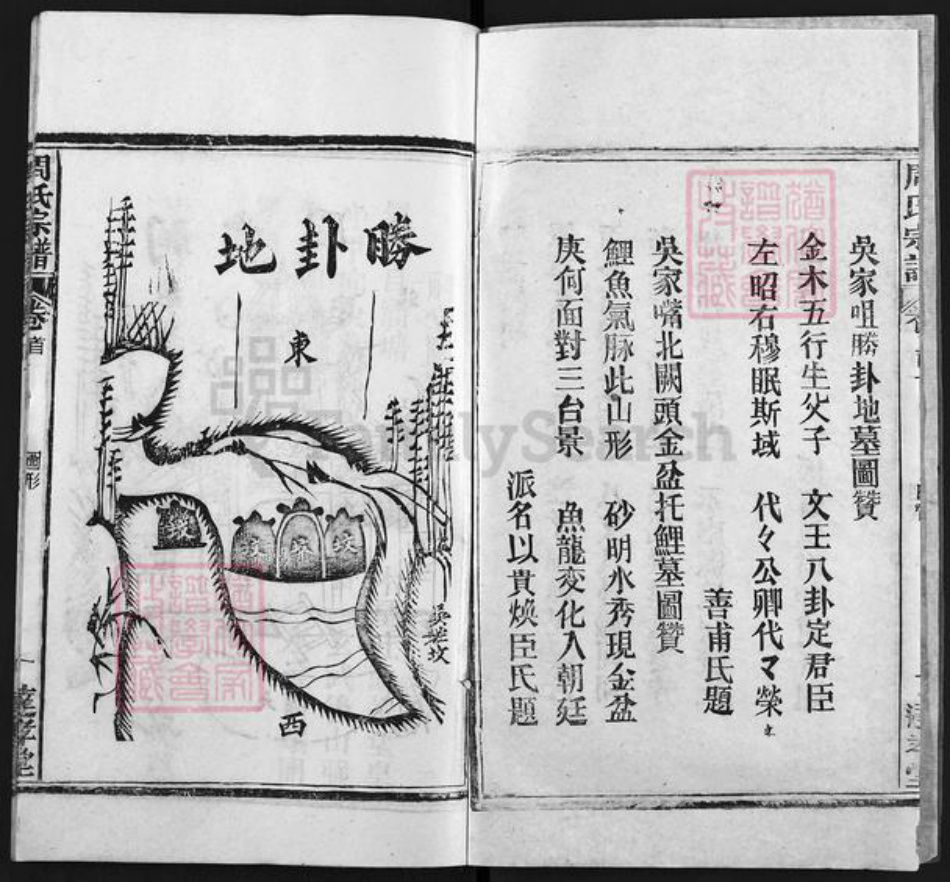 吳家咀勝卦地墓圖贊
金木五行生父子 文王八卦定君臣
左昭右穆眠斯域 代々公卿代々榮
善甫氏題
吳家嘴北闕頭金盆托鯉墓圖贊
鯉魚氣脉此山形 砂明水秀現金盆
庚何面對三台景 魚龍変化入朝廷
派名以貴煥臣氏題
周氏宗譜
勝卦地
東
西
周氏宗譜 卷首 圖形
FamilySearch